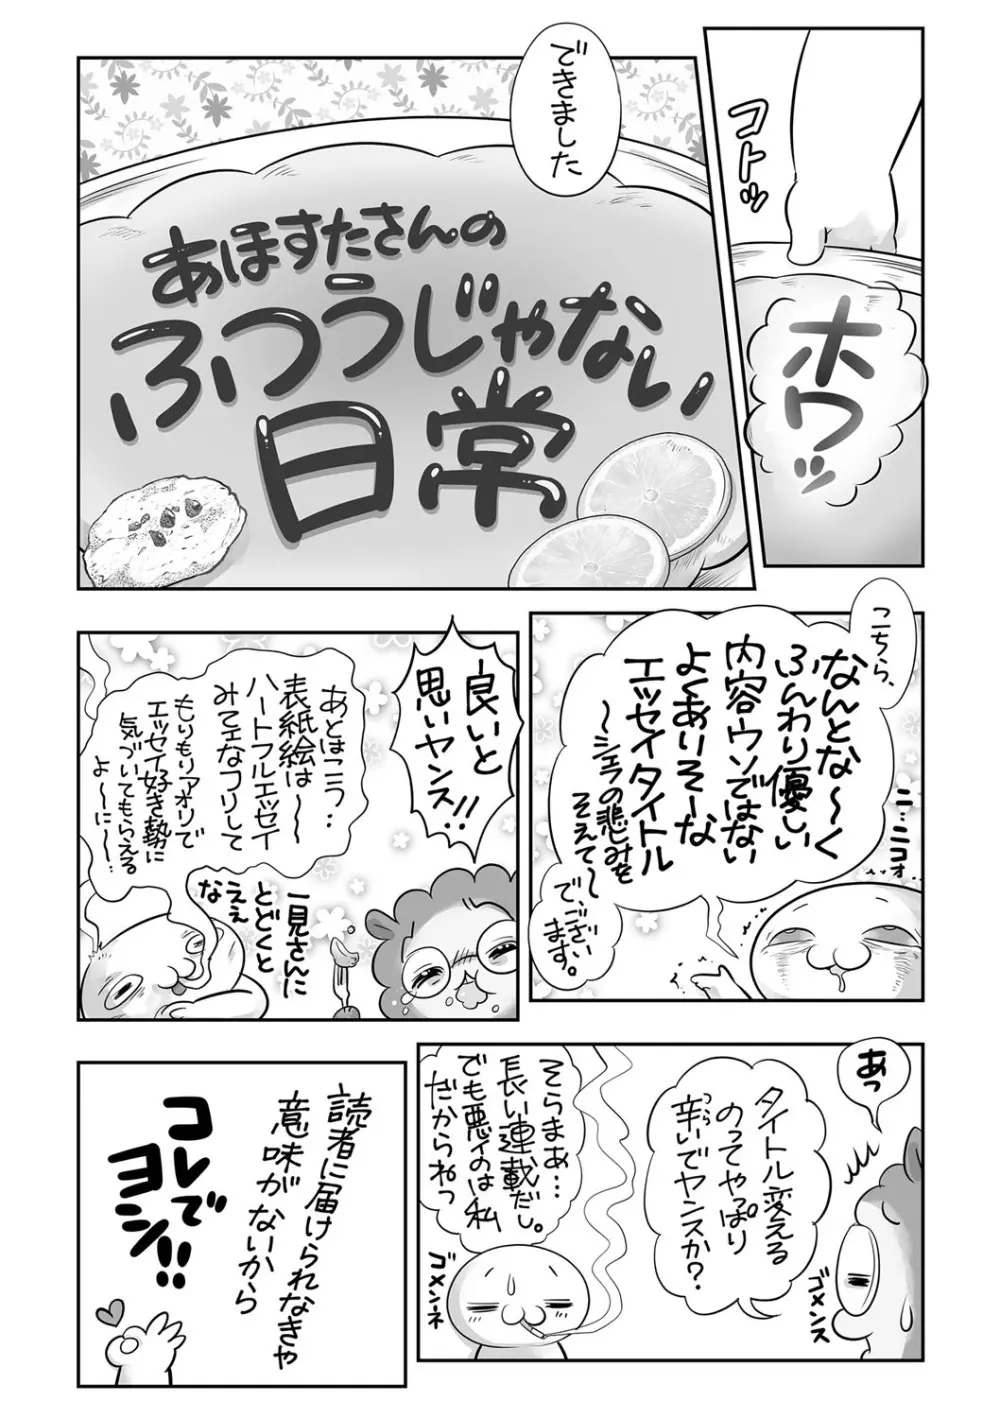 コトッ
ホワッ
できました
あほすたさんの
ふつうじゃない
日常
こちら、
なんとな〜く
ふんわり優しい
内容ウソではない
よくありそーな
エッセイタイトル
〜シェフの悲しみを
そえて〜
で、ございます。
ニ…ニコォ
良いと
思いヤンス!!
あとはこう…
表紙絵は〜
ハートフルエッセイ
みてェなフリして
もりもりアオリで
エッセイ好き勢に
気づいてもらえる
よーに〜…
一見さんに
とどくと
ええ
なぇ
あっ
タイトル変える
のってやっぱり
辛いでヤンスか?
つら
ゴメンンス
そらまあ…
長い連載だし。
でも悪ィのは私
だからねっ
ゴメンネ
読者に届けられなきゃ
意味がないから
コレで
ヨシ!!